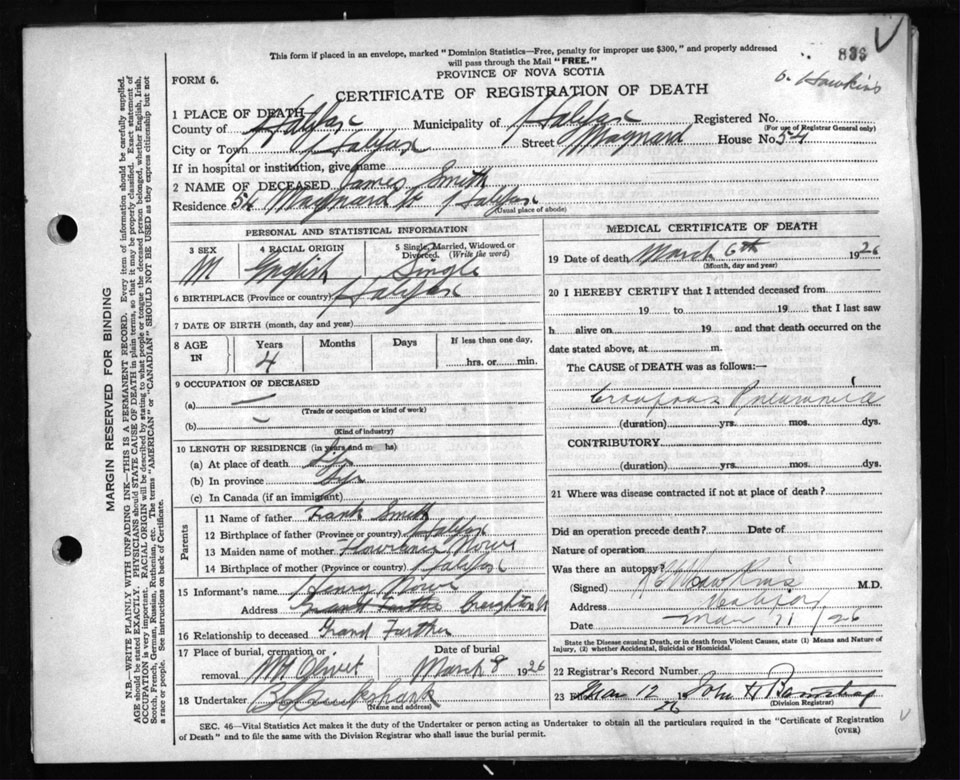 This form if placed in an envelope, marked "Dominion Statistics—Free, penalty for improper use $300," and properly addressed
will pass through the Mail "FREE."
836
V
FORM 6.
PROVINCE OF NOVA SCOTIA
Hawkins
CERTIFICATE OF REGISTRATION OF DEATH
1 PLACE OF DEATH
County of Halifax Municipality of Halifax Registered No.
(For use of Registrar General only)
City or Town Halifax Street Maynard House No. 54
If in hospital or institution, give name
2 NAME OF DECEASED James Smith
Residence 54 Maynard St Halifax
(Usual place of abode)
PERSONAL AND STATISTICAL INFORMATION
3 SEX 4 RACIAL ORIGIN 5 Single, Married, Widowed or Divorced. (Write the word)
M English Single
6 BIRTHPLACE (Province or country) Halifax
7 DATE OF BIRTH (month, day and year)
8 AGE IN Years Months Days If less than one day,
4 hrs. or min.
9 OCCUPATION OF DECEASED
(a) —
(Trade or occupation or kind of work)
(b) —
(Kind of industry)
10 LENGTH OF RESIDENCE (in years and m hs)
(a) At place of death life
(b) In province life
(c) In Canada (if an immigrant)
Parents
11 Name of father Frank Smith
12 Birthplace of father (Province or country) Halifax
13 Maiden name of mother Florence
14 Birthplace of mother (Province or country) Halifax
15 Informant's name Henry
Address Grand Farther Creighton St
16 Relationship to deceased Grand Farther
17 Place of burial, cremation or removal Date of burial
Mt Olivet March 8 1926
18 Undertaker
(Name and address)
MEDICAL CERTIFICATE OF DEATH
19 Date of death March 6th 1926
(Month, day and year)
20 I HEREBY CERTIFY that I attended deceased from
19 to 19 that I last saw
h alive on 19 and that death occurred on the
date stated above, at m.
The CAUSE of DEATH was as follows:—
Croupous Pneumonia
(duration) yrs. mos. dys.
CONTRIBUTORY
(duration) yrs. mos. dys.
21 Where was disease contracted if not at place of death?
Did an operation precede death? Date of
Nature of operation
Was there an autopsy?
(Signed) Hawkins M.D.
Address Halifax
Date Mar 11/26
State the Disease causing Death, or in death from Violent Causes, state (1) Means and Nature of
Injury, (2) whether Accidental, Suicidal or Homicidal.
22 Registrar's Record Number
23 F Mar 12 19 26 John H
(Division Registrar)
SEC. 46—Vital Statistics Act makes it the duty of the Undertaker or person acting as Undertaker to obtain all the particulars required in the "Certificate of Registration
of Death" and to file the same with the Division Registrar who shall issue the burial permit.
(OVER)
V
MARGIN RESERVED FOR BINDING
N.B.—WRITE PLAINLY WITH UNFADING INK—THIS IS A PERMANENT RECORD. Every item of information should be carefully supplied.
AGE should be stated EXACTLY. PHYSICIANS should STATE CAUSE OF DEATH in plain terms, so that it may be properly classified. Exact statement of
OCCUPATION is very important. RACIAL ORIGIN will be described by stating to what people or tongue the deceased person belonged, whether English, Irish,
Scotch, French, German, Russian, Ruthenian, etc. The terms "AMERICAN" or "CANADIAN" SHOULD NOT BE USED as they express citizenship but not
a race or people. See instructions on back of Certificate.